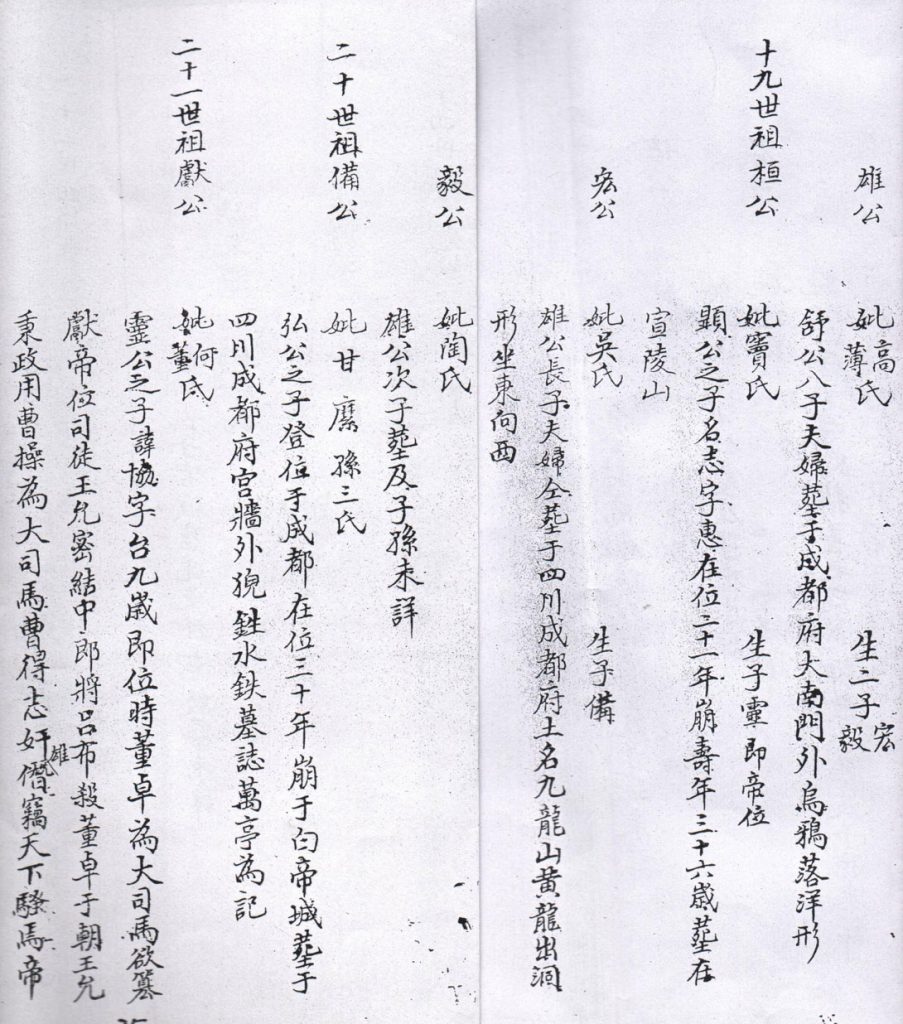 雄公
妣高氏薄氏 生二子宏毅
舒公八子夫婦塟于成都府大南門外烏鴉落洋形
十九世祖桓公
妣竇氏 生子靈即帝位
顕公之子名志字惠在位二十一年崩壽年三十六歲塟在
宣陵山
宏公
妣吳氏 生子備
雄公長子夫婦仝塟于四川成都府土名九龍山黄龍出洞
形坐東向西
毅公
妣陶氏
雄公次子塟及子孫未詳
二十世祖備公
妣甘糜孫三氏
弘公之子登位于成都在位三十年崩于白帝城塟于
四川成都府宫牆外猊鉎水鉄墓誌萬亭為記
二十一世祖獻公
妣何董氏
靈公之子諱協字台九歲即位時董卓為大司馬欲篡
獻帝位司徒王允密結中郎將吕布殺董卓于朝王允
秉政用曹操為大司馬曹得志奸雄僭竊天下騷馬帝